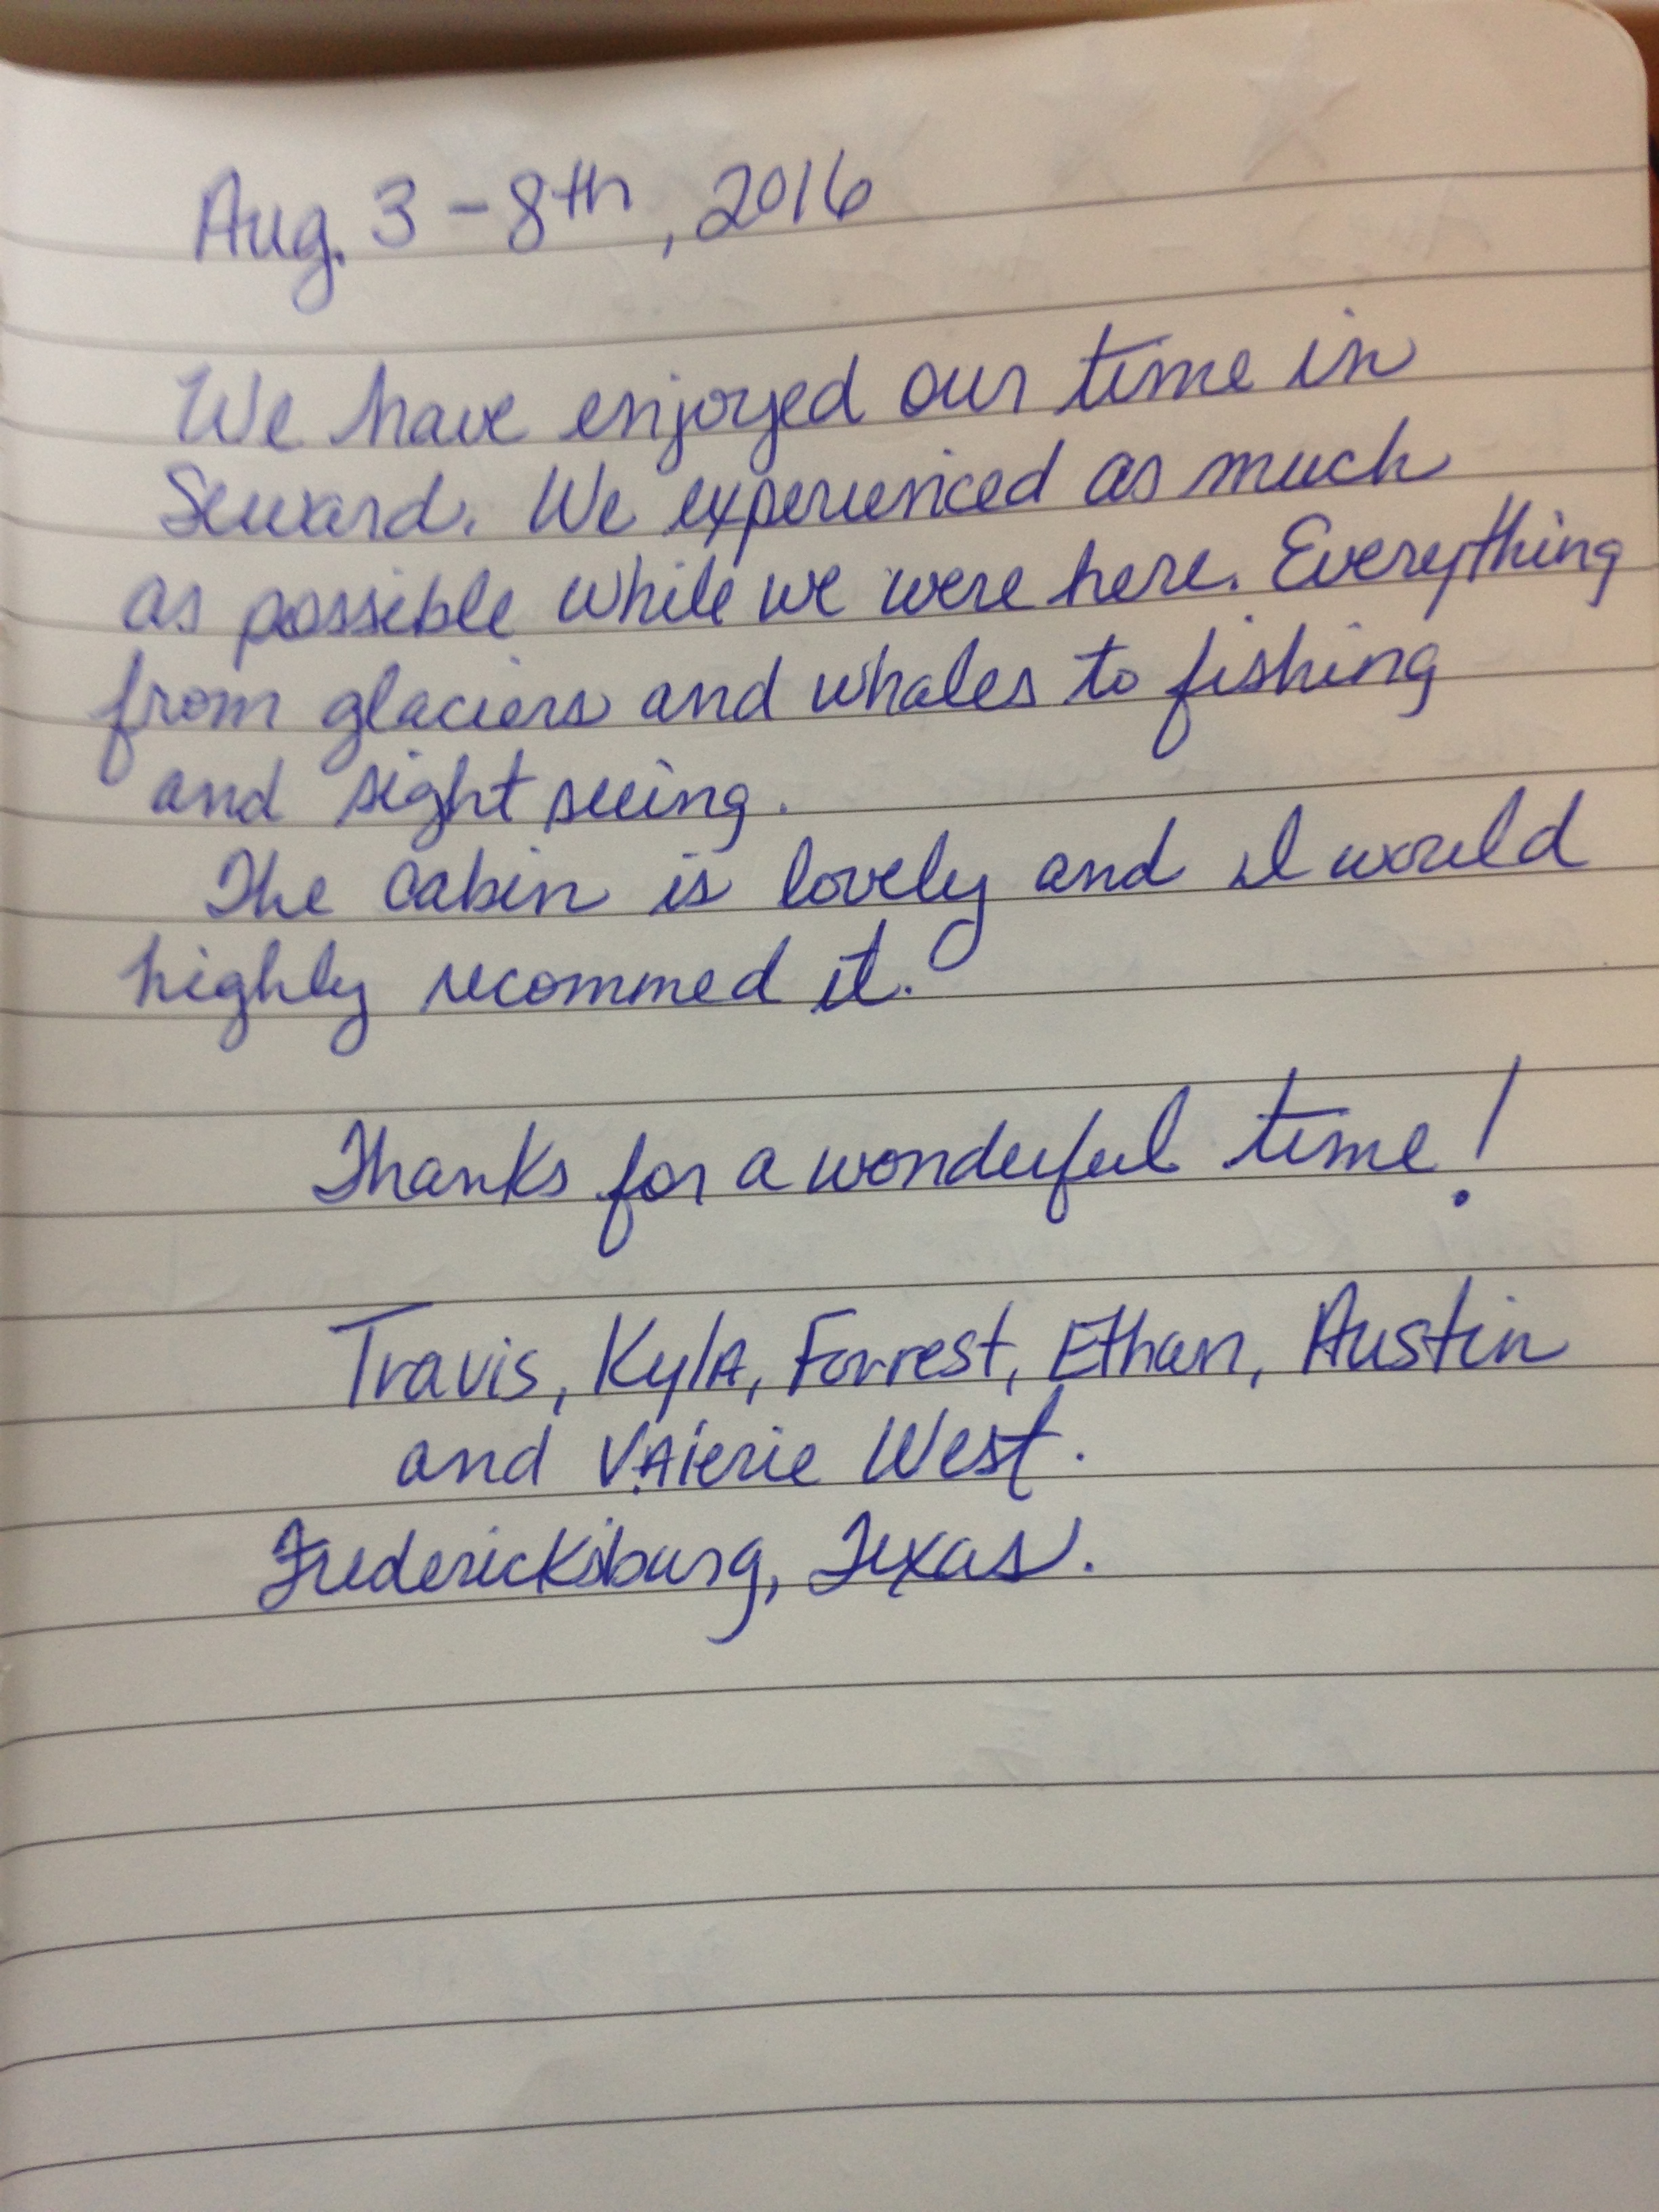 Aug. 3 - 8th, 2016
We have enjoyed our time in
Seward. We experienced as much
as possible while we were here. Everything
from glaciers and whales to fishing
and sight seeing.
The cabin is lovely and I would
highly recommed it.
Thanks for a wonderful time!
Travis, Kyla, Forrest, Ethan, Austin
and Valerie West.
Fredericksburg, Texas.